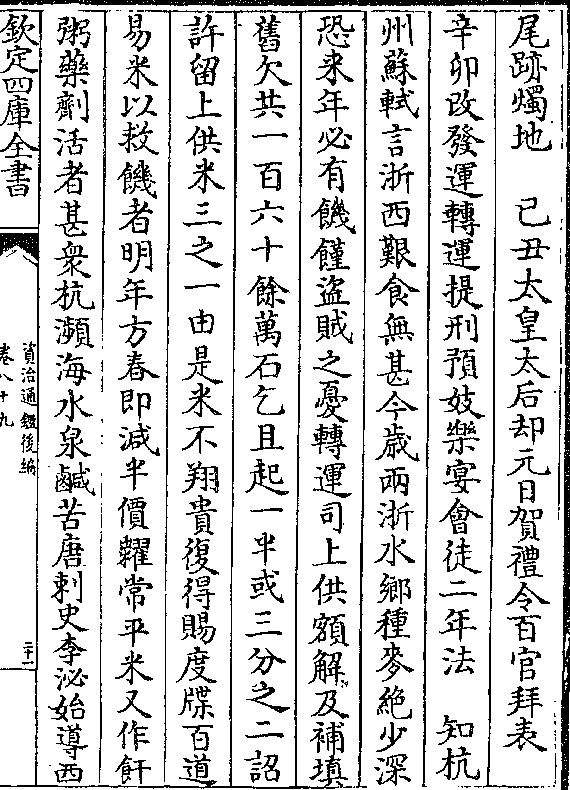 尾跡燭地　　己丑太皇太后却元日賀禮令百官拜表
辛卯改發運轉運提刑預妓樂宴會徒二年法　知杭
州蘇軾言浙西艱食無甚今歲兩浙水鄉種麥絶少深
恐来年必有饑饉盜賊之憂轉運司上供額觧及補填
舊欠共一百六十餘萬石乞且起一半或三分之二詔
許留上供米三之一由是米不翔貴復得賜度牒百道
易米以救饑者明年方春即减半價糶常平米又作飦
粥藥劑活者甚衆杭瀕海水泉鹹苦唐刺史李泌始導西
欽定四庫全書
資治通鑑後編
卷八十九
二十一